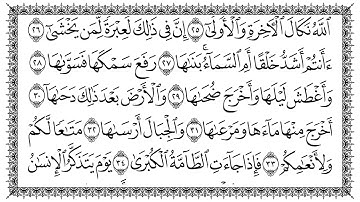 ٱللَّهُ نَكَالَ ٱلۡأٓخِرَةِ وَٱلۡأُولَىٰٓ ٢٥ إِنَّ فِي ذَٰلِكَ لَعِبۡرَةٗ لِّمَن يَخۡشَىٰٓ ٢٦
ءَأَنتُمۡ أَشَدُّ خَلۡقًا أَمِ ٱلسَّمَآءُۚ بَنَىٰهَا ٢٧ رَفَعَ سَمۡكَهَا فَسَوَّىٰهَا ٢٨
وَأَغۡطَشَ لَيۡلَهَا وَأَخۡرَجَ ضُحَىٰهَا ٢٩ وَٱلۡأَرۡضَ بَعۡدَ ذَٰلِكَ دَحَىٰهَآ ٣٠
أَخۡرَجَ مِنۡهَا مَآءَهَا وَمَرۡعَىٰهَا ٣١ وَٱلۡجِبَالَ أَرۡسَىٰهَا ٣٢ مَتَٰعٗا لَّكُمۡ
وَلِأَنۡعَٰمِكُمۡ ٣٣ فَإِذَا جَآءَتِ ٱلطَّآمَّةُ ٱلۡكُبۡرَىٰ ٣٤ يَوۡمَ يَتَذَكَّرُ ٱلۡإِنسَٰنُ